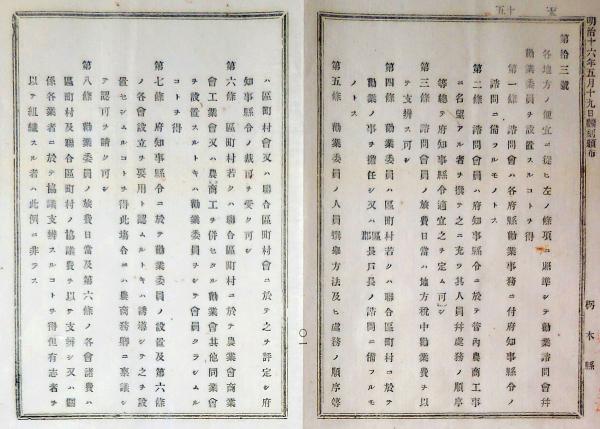 明治十六年五月十九日翻刻頒布
栃木縣
第拾三號
各地方ノ便宜ニ從ヒ左ノ條項ニ照準シテ勸業諮問會幷
勸業委員ヲ設置スルコトヲ得
第一條 諮問會ハ各府縣勸業事務ニ付府知事縣令ノ
諮問ニ備フルモノトス
第二條 諮問會員ハ府知事縣令ニ於テ管內農商工事
ニ名望アル者ヲ撰テ之ニ充ツ其人員幷處務ノ順序
等總テ府知事縣令適宜之ヲ定ム可シ
第三條 諮問會員ノ旅費日當ハ地方稅中勸業費ヲ以
テ支辨ス可シ
第四條 勸業委員ハ區町村若クハ聯合區町村ニ於テ
勸業ノ事ヲ擔任シ又ハ郡區長戶長ノ諮問ニ備フルモ
ノトス
第五條 勸業委員ノ人員撰擧方法及ヒ處務ノ順序等
ハ區町村會又ハ聯合區町村會ニ於テ之ヲ評定シ府
知事縣令ノ裁可ヲ受ク可シ
第六條 區町村若クハ聯合區町村ニ於テ農業會商業
會工業會又ハ農商工ヲ併セタル勸業會其他同業會
ヲ設置スルトキハ勸業委員ヲシテ會員タラシムル
コトヲ得
第七條 府知事縣令ニ於テ勸業委員ノ設置及第六條
ノ各會設立ヲ要用ト認ムルトキハ誘導シテ之ヲ設
置セシムルコトヲ得此塲合ニハ農商務卿ニ稟議シ
テ認可ヲ請ク可シ
第八條 勸業委員ノ旅費日當及第六條ノ各會諸費ハ
區町村及聯合區町村ノ協議費ヲ以テ支辨シ又ハ關
係各業者ニ於テ協議支辨スルコトヲ得但有志者ヲ
以テ組織スル者ハ此例ニ非ラス
〇一